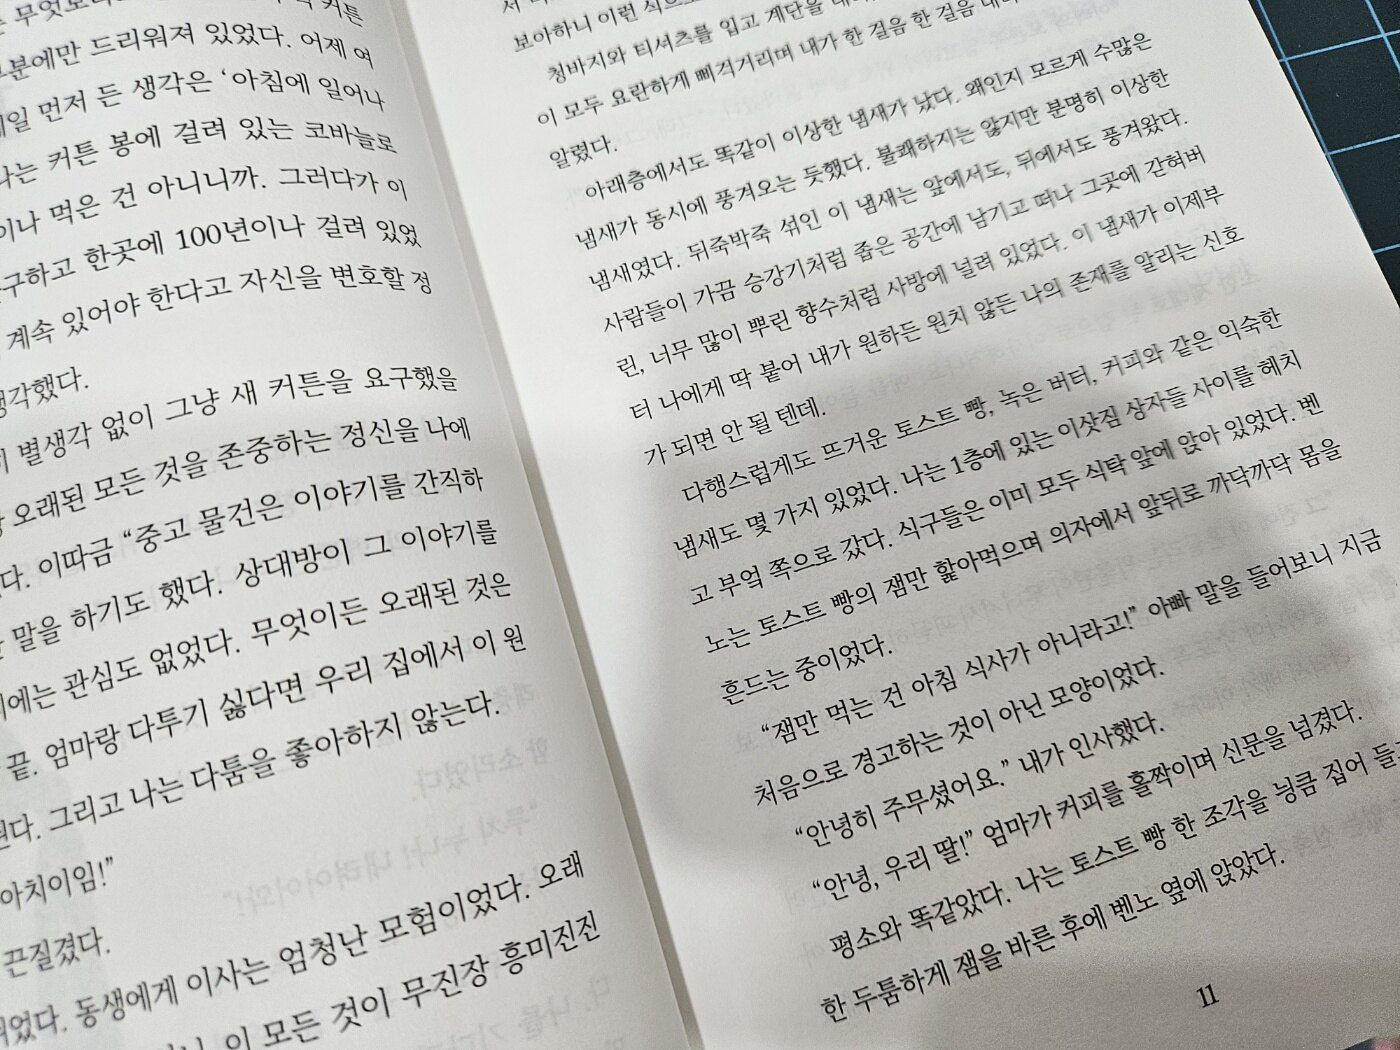 커튼
드리워져 있었다. 어제 여
먼저 든 생각은 ‘아침에 일어나
나는 커튼 봉에 걸려 있는 코바늘로
먹은 건 아니니까. 그러다가 이
한곳에 100년이나 걸려 있었
계속 있어야 한다고 자신을 변호할 정
생각했다.
별생각 없이 그냥 새 커튼을 요구했을
오래된 모든 것을 존중하는 정신을 나에
다. 이따금 “중고 물건은 이야기를 간직하
말을 하기도 했다. 상대방이 그 이야기를
에는 관심도 없었다. 무엇이든 오래된 것은
끝. 엄마랑 다투기 싫다면 우리 집에서 이 원
된다. 그리고 나는 다툼을 좋아하지 않는다.
아치이임!”
끈질겼다.
되었다. 동생에게 이사는 엄청난 모험이었다. 오래
이 모든 것이 무진장 흥미진진
보아하니 이런 식으로
청바지와 티셔츠를 입고 계단을
이 모두 요란하게 삐걱거리며 내가 한 걸음 한 걸음
알렸다.
아래층에서도 똑같이 이상한 냄새가 났다. 왜인지 모르게 수많은
냄새가 동시에 풍겨오는 듯했다. 불쾌하지는 않지만 분명히 이상한
냄새였다. 뒤죽박죽 섞인 이 냄새는 앞에서도, 뒤에서도 풍겨왔다.
사람들이 가끔 승강기처럼 좁은 공간에 남기고 떠나 그곳에 갇혀버
린, 너무 많이 뿌린 향수처럼 사방에 널려 있었다. 이 냄새가 이제부
터 나에게 딱 붙어 내가 원하든 원치 않든 나의 존재를 알리는 신호
가 되면 안 될 텐데.
다행스럽게도 뜨거운 토스트 빵, 녹은 버터, 커피와 같은 익숙한
냄새도 몇 가지 있었다. 나는 1층에 있는 이삿짐 상자들 사이를 헤치
고 부엌 쪽으로 갔다. 식구들은 이미 모두 식탁 앞에 앉아 있었다. 벤
노는 토스트 빵의 잼만 핥아먹으며 의자에서 앞뒤로 까닥까닥 몸을
흔드는 중이었다.
“잼만 먹는 건 아침 식사가 아니라고!” 아빠 말을 들어보니 지금
처음으로 경고하는 것이 아닌 모양이었다.
“안녕히 주무셨어요.” 내가 인사했다.
“안녕, 우리 딸!” 엄마가 커피를 홀짝이며 신문을 넘겼다.
평소와 똑같았다. 나는 토스트 빵 한 조각을 닁큼 집어 들고
한 두툼하게 잼을 바른 후에 벤노 옆에 앉았다.
11